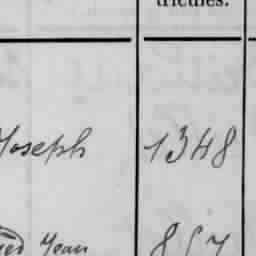 tricules.
Joseph 1348
Jean 857